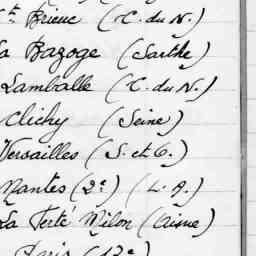 St Brieuc (C. du N.)
La Bazoge (Sarthe)
Lamballe (C. du N.)
Clichy (Seine)
Versailles (S. et O.)
Nantes (2e) (L. I.)
La Ferté Milon (Aisne)
Paris (12e)